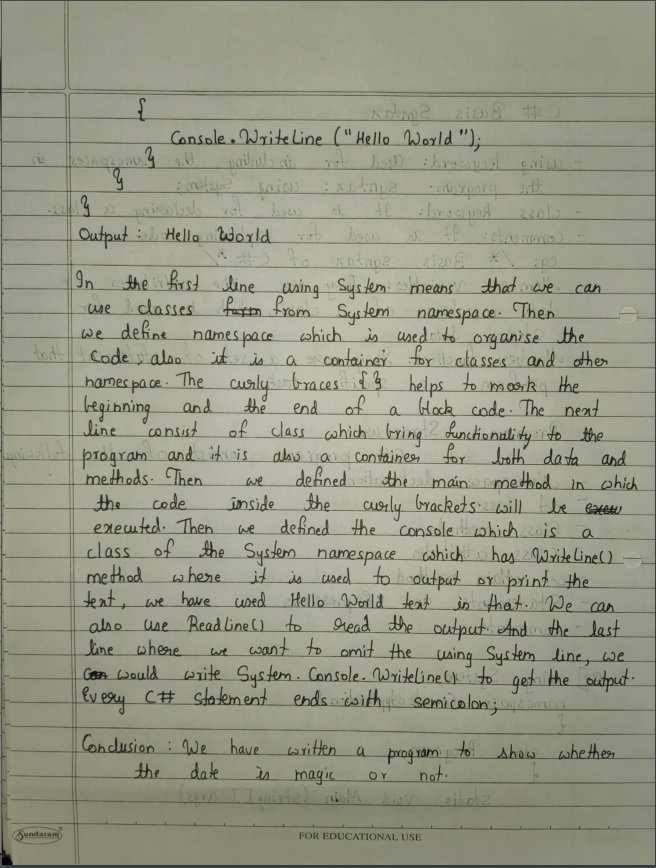 {
Console.WriteLine ("Hello World");
}
}
}
Output : Hello World
In the first line using System means that we can
use classes from System namespace. Then
we define namespace which is used to organise the
Code, also it is a container for classes and other
namespace. The curly braces { } helps to mark the
beginning and the end of a block code. The next
line consist of class which bring functionality to the
program and it is also container for both data and
methods. Then we defined the main method in which
the code inside the curly brackets will be
executed. Then we defined the console which is a
class of the System namespace which has WriteLine()
method where it is used to output or print the
text, we have used Hello World text in that. We can
also use ReadLine() to read the output. And the last
line where we want to omit the using System line, we
would write System. Console. WriteLine() to get the output.
Every C# statement ends with semicolon;
Conclusion : We have written a program to show whether
the date is magic or not.
Sundaram
FOR EDUCATIONAL USE